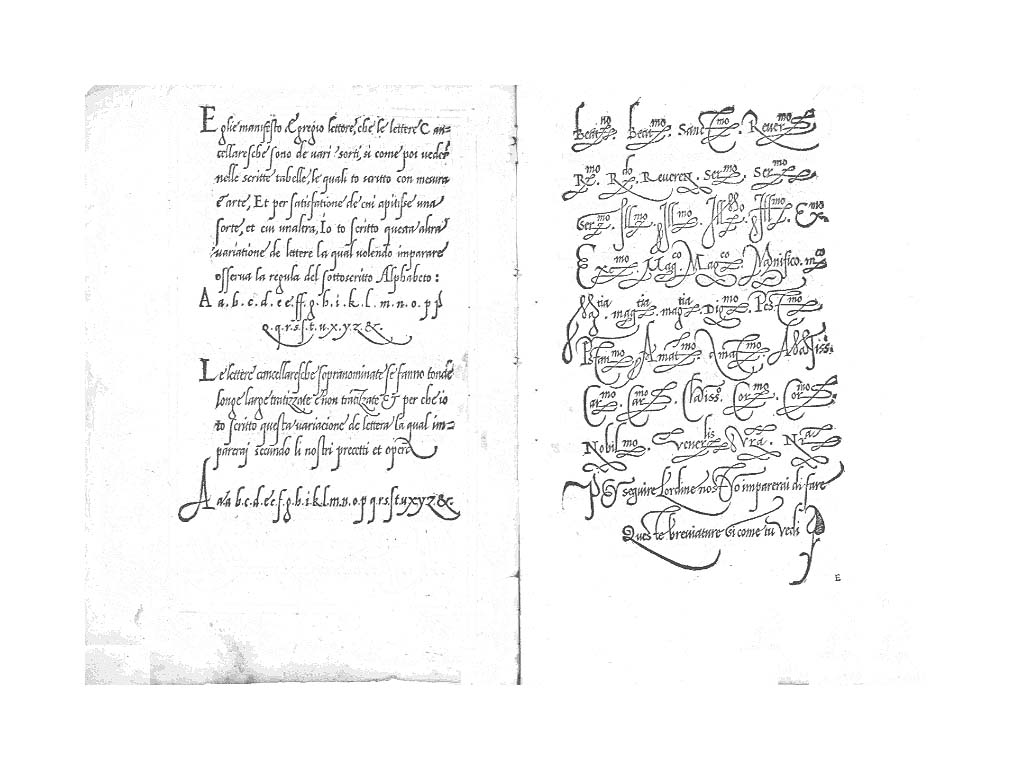 Eglie manifesto Egregio lettore, che le lettere Can-
cellaresche sono de vari sorti, si come poi veder
nelle scritte tabelle, le quali io scritto con mesura
& arte, Et per satisfatione de chi apitisse una
sorte, et cui unaltra, Io to scritto questa altra
variatione de lettere la qual volendo imparare
osserva la regula del sottoscritto Alphabeto:
A a.b.c.d.e e ff.g.h.i.k.l.m.n.o.p p
q.q.r.s.ſ.t.u.x.y.z.&.
Le lettere cancellaresche sopranominate se fanno tonde
longe large tratizzate e non tratizzate ET per che io
to scritto questa variacione de lettera la qual im-
parerai secondo li nostri precetti et opere
A a a b.c.d.e.e f.g.h.i.k.l.m.n.o.p q r.s.ſ t u x y z &.
Beat.no. Beat.mo. Sanct.mo. Rever.mo
R.mo. R.do. Reveren. Ser.mo. Ser.mo
Ser.mo. Ill.mo. Illmo. Ill. Illmo. Ex.mo
Exc.mo. Mag.co. Mag.co. Manifico. m.co
Mag.tia. mag.tia. mag.tia. Dig.mo. Pest.mo
Prestan.mo. Amat.mo. Amat.mo. Abatiss.
Car.mo. Car.mo. Chariss.o. Cor.mo. Cor.mo
Nobil.mo. Vener.lis. Vra. Nra.
PEr seguire Lordine nostro imparerai di fare
Queste breviature Si come tu vedi
E